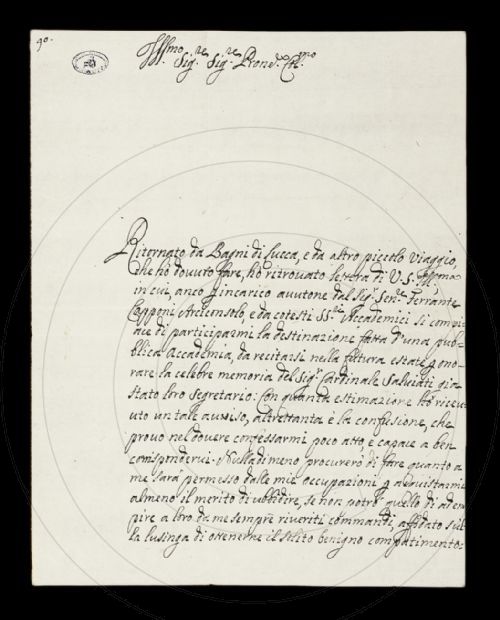 90.
Ill.mo Sig.re Sig.re Pron. Col.mo
Ritornato da Bagni di Lucca, e da altro piccolo viaggio,
che ho dovuto fare, ho ritrovato lettera di V. S. Ill.ma
in cui, anco p incarico avutone dal Sig.r Sen.re Ferrante
Capponi Arciconsolo, e da cotesti SS.ri Accademici si compi-
ace di participarmi la destinazione fatta d'una pub-
blica Accademia, da recitarsi nella futura estate p ono-
rare la celebre memoria del Sig.r Cardinale Salviati già
stato loro Segretario. Con quanta estimazione ho ricevu-
uto un tale avviso, altrettanta è la confusione, che
provo nel dovere confessarmi poco atto, e capace a ben
corrispondervi. Nulladimeno procurerò di fare quanto a
me sarà permesso dalle mie occupazioni p acquistarmi
almeno il merito di ubbidire, se non potrò quello di adem-
pire a loro da me sempre riveriti commandi, affidato sul-
la lusinga di ottenerne il solito benigno compatimento: